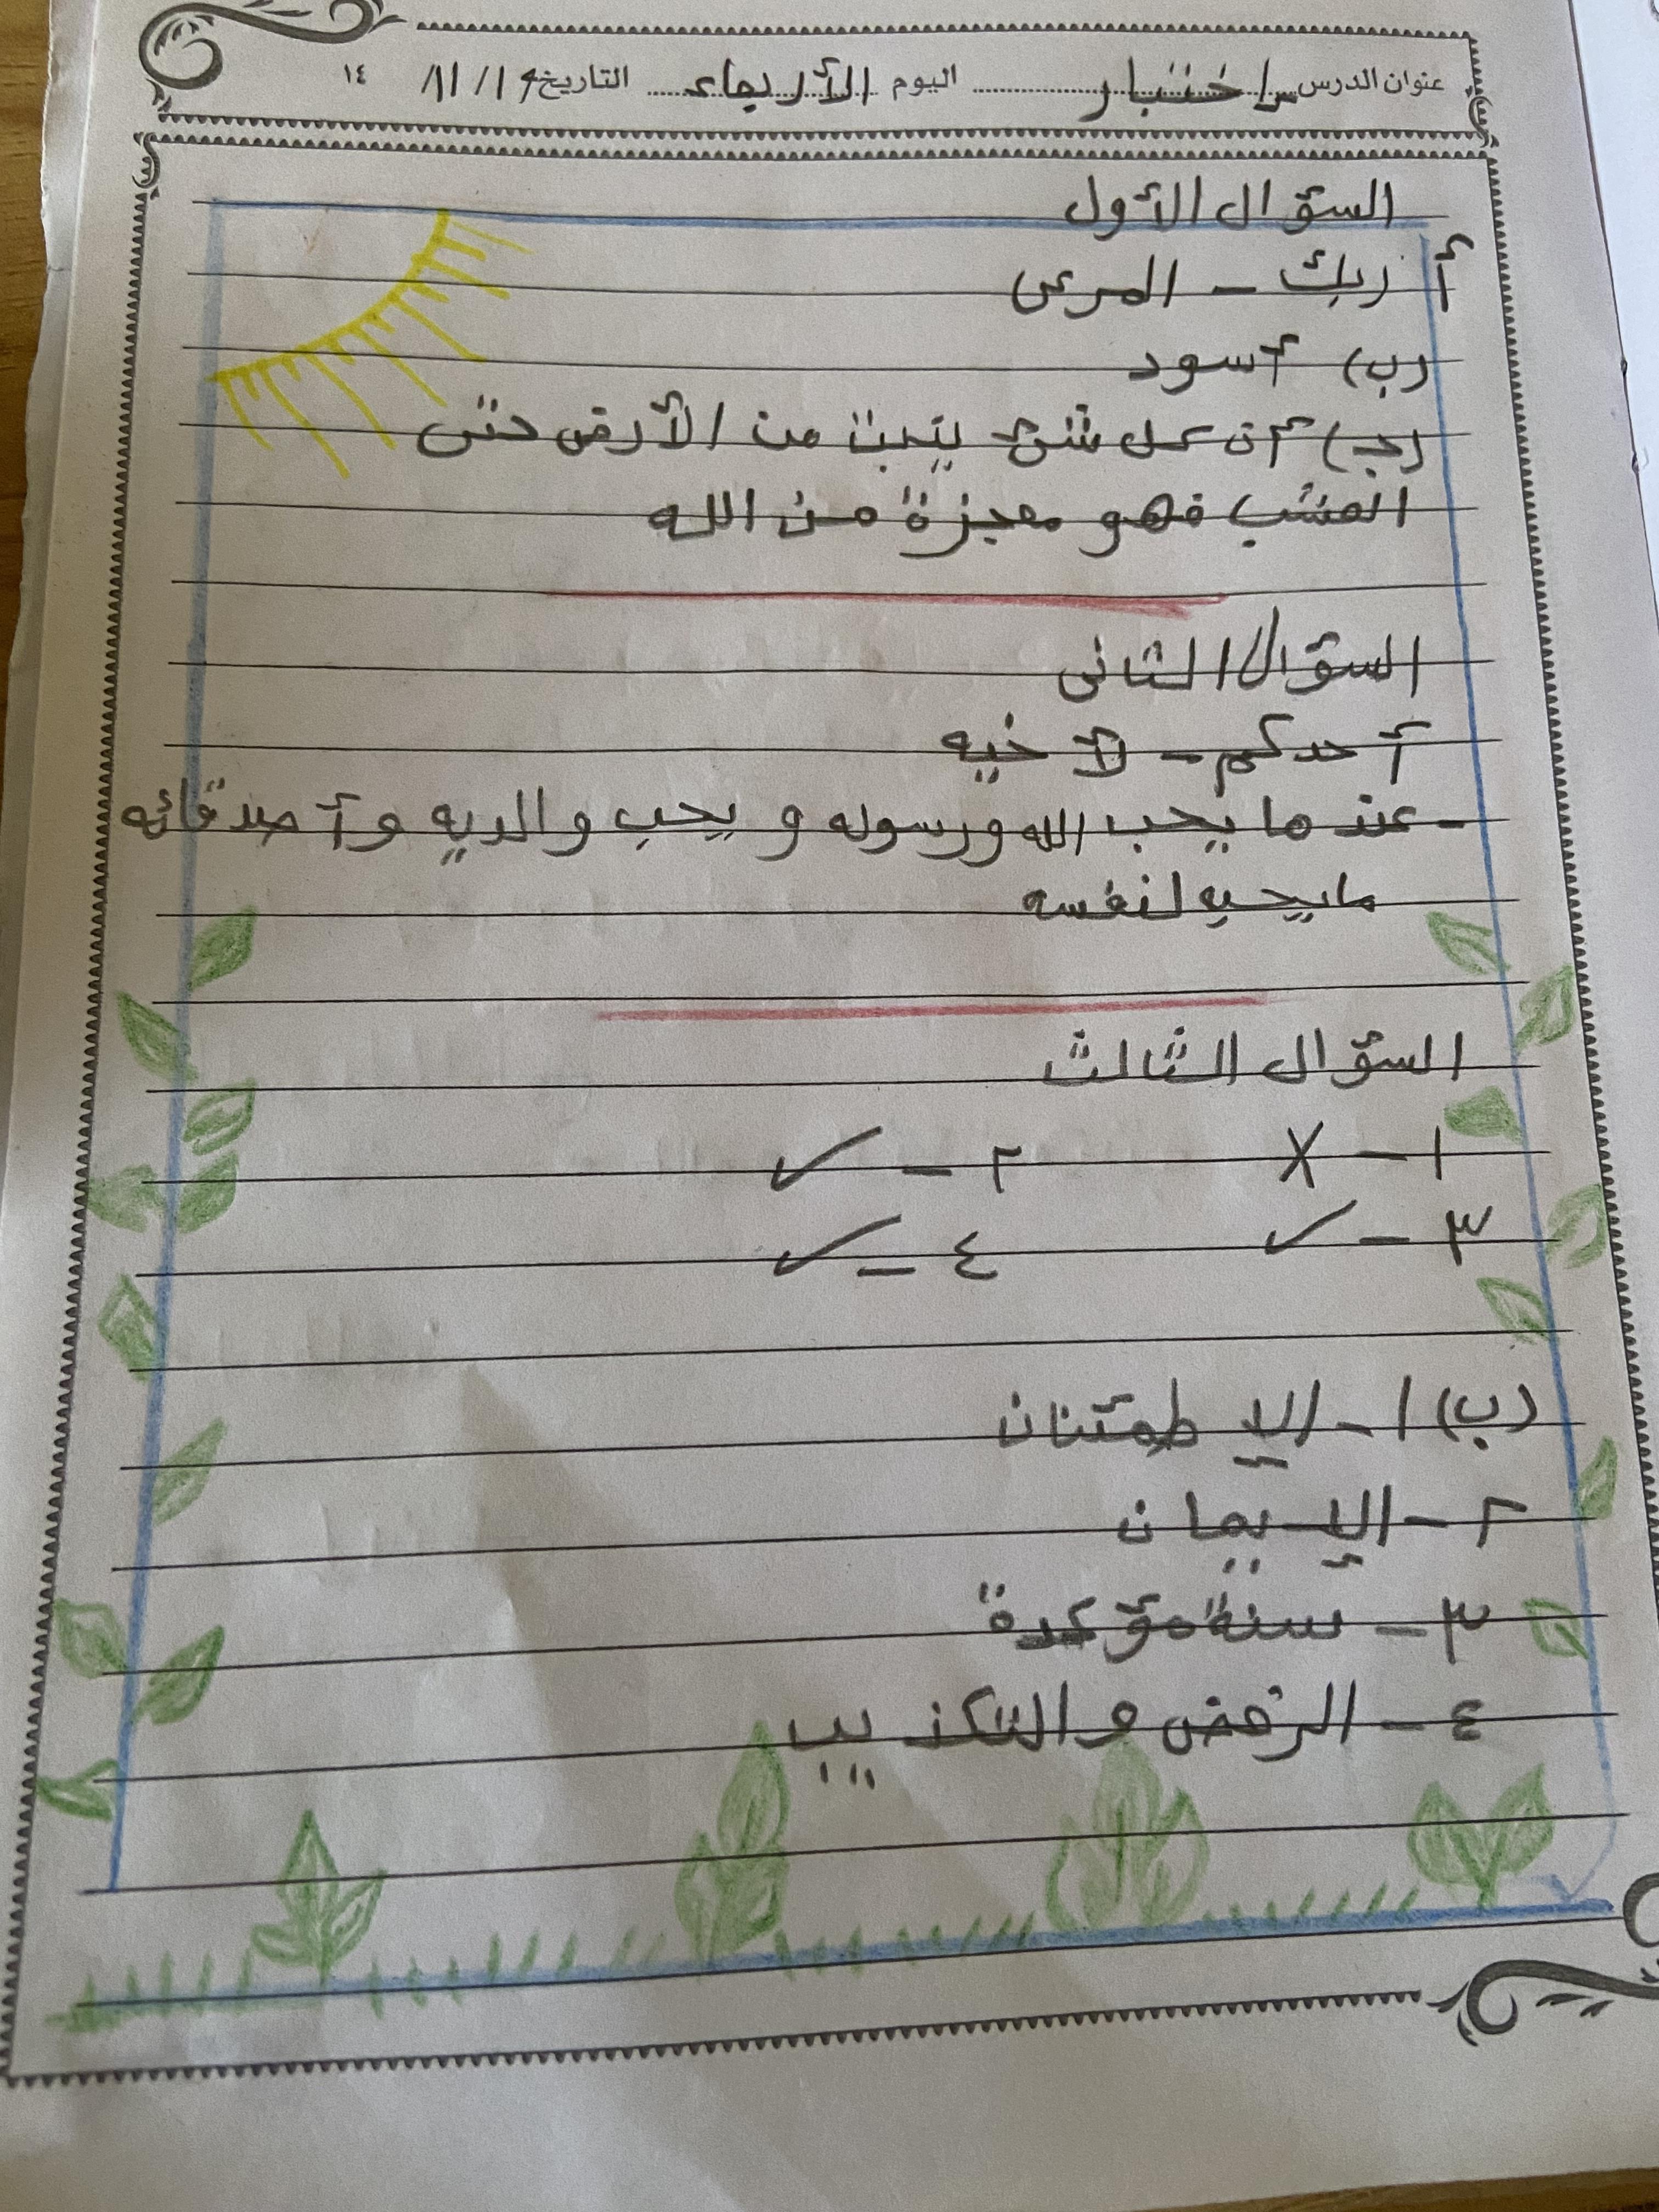 عنوان الدرس إختبار اليوم الأربعاء التاريخ ١٩ / ١١ / ١٤
السؤال الأول
أ ربك - المرعى
(ب) أسود
(جـ) أن كل شئ ينبت من الأرض حتى
العشب فهو معجزة من الله
السؤال الثانى
أحدكم - لأخيه
- عندما يحب الله ورسوله و يحب والديه وأصدقائه
ما يحبه لنفسه
السؤال الثالث
١ - X ٢ - ✓
٣ - ✓ ٤ - ✓
(ب) ١ - الإطمئنان
٢ - الإيمان
٣ - سنة مؤكدة
٤ - الرفض والتكذيب